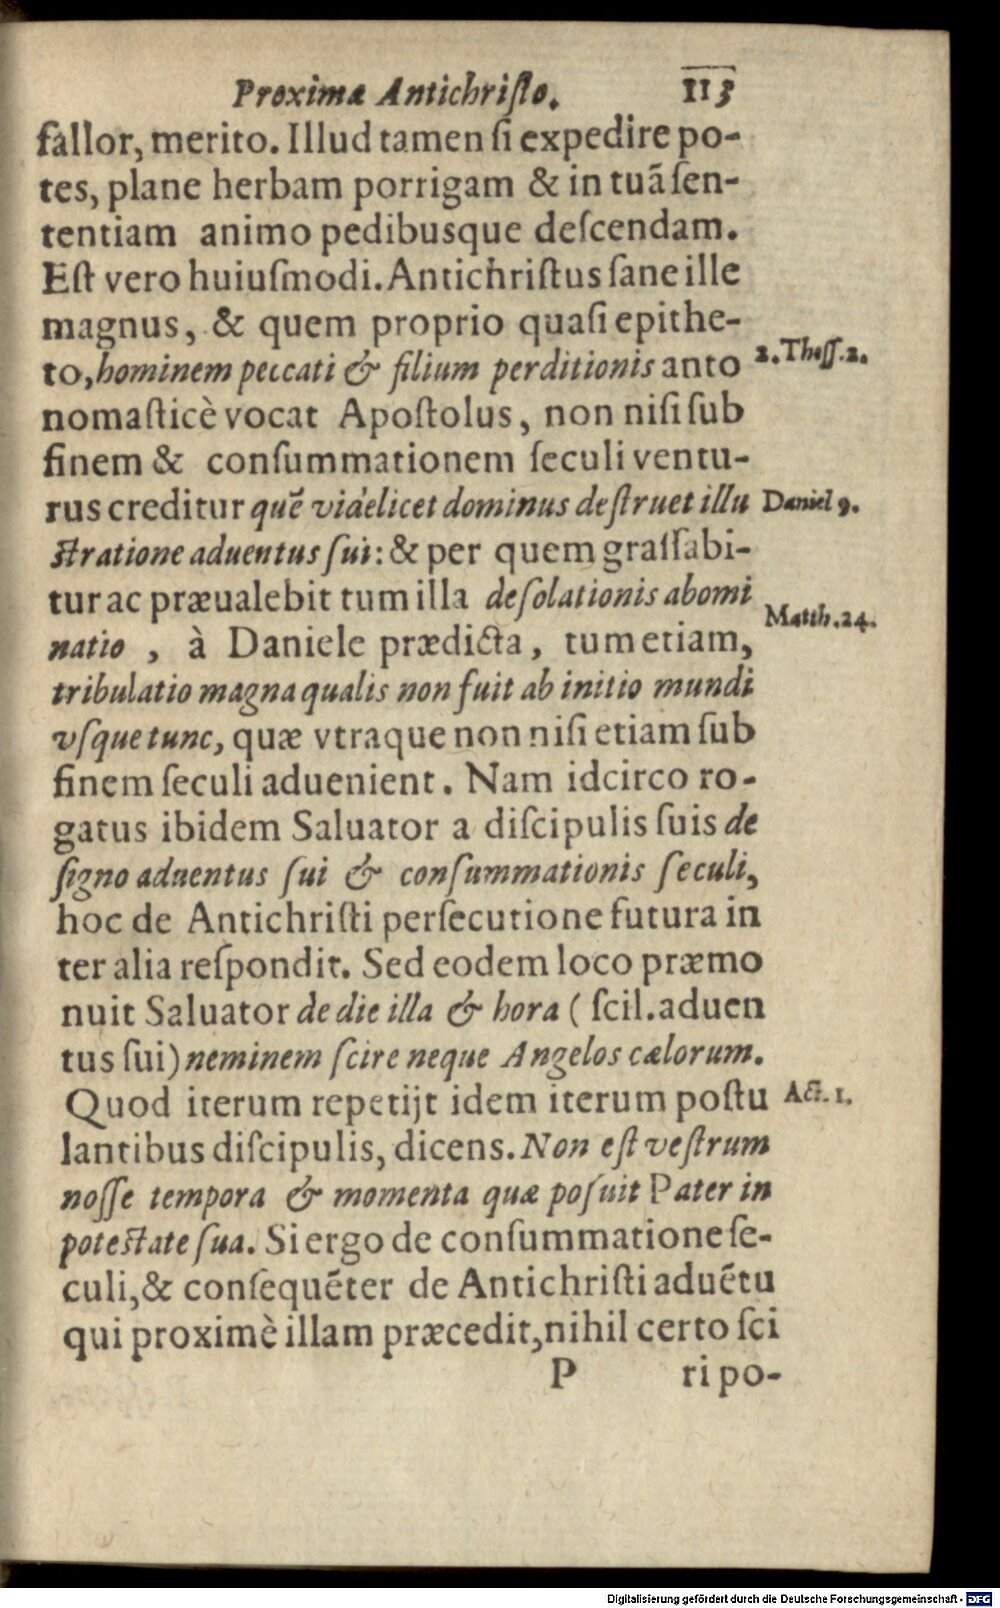 Proximæ Antichriſto. 113
fallor, merito. Illud tamen ſi expedire po-
tes, plane herbam porrigam & in tuã ſen-
tentiam animo pedibusque deſcendam.
Eſt vero huiuſmodi. Antichriſtus ſane ille
magnus, & quem proprio quaſi epithe-
to, hominem peccati & filium perditionis anto
2. Theſſ. 2.
nomaſticè vocat Apoſtolus, non niſi ſub
finem & conſummationem ſeculi ventu-
rus creditur quẽ videlicet dominus deſtruet illu
Daniel 9.
ſtratione aduentus ſui: & per quem graſſabi-
tur ac præualebit tum illa deſolationis abomi
Matth. 24.
natio , à Daniele prædicta, tum etiam,
tribulatio magna qualis non fuit ab initio mundi
vſque tunc, quæ vtraque non niſi etiam ſub
finem ſeculi aduenient. Nam idcirco ro-
gatus ibidem Saluator a diſcipulis ſuis de
ſigno aduentus ſui & conſummationis ſeculi,
hoc de Antichriſti perſecutione futura in
ter alia reſpondit. Sed eodem loco præmo
nuit Saluator de die illa & hora ( ſcil. aduen
tus ſui) neminem ſcire neque Angelos cælorum.
Quod iterum repetijt idem iterum poſtu
Act. 1.
lantibus diſcipulis, dicens. Non eſt veſtrum
noſſe tempora & momenta quæ poſuit Pater in
poteſtate ſua. Si ergo de conſummatione ſe-
culi, & conſequẽter de Antichriſti aduẽtu
qui proximè illam præcedit, nihil certo ſci
P ri po-
Digitalisierung gefördert durch die Deutsche Forschungsgemeinschaft - DFG